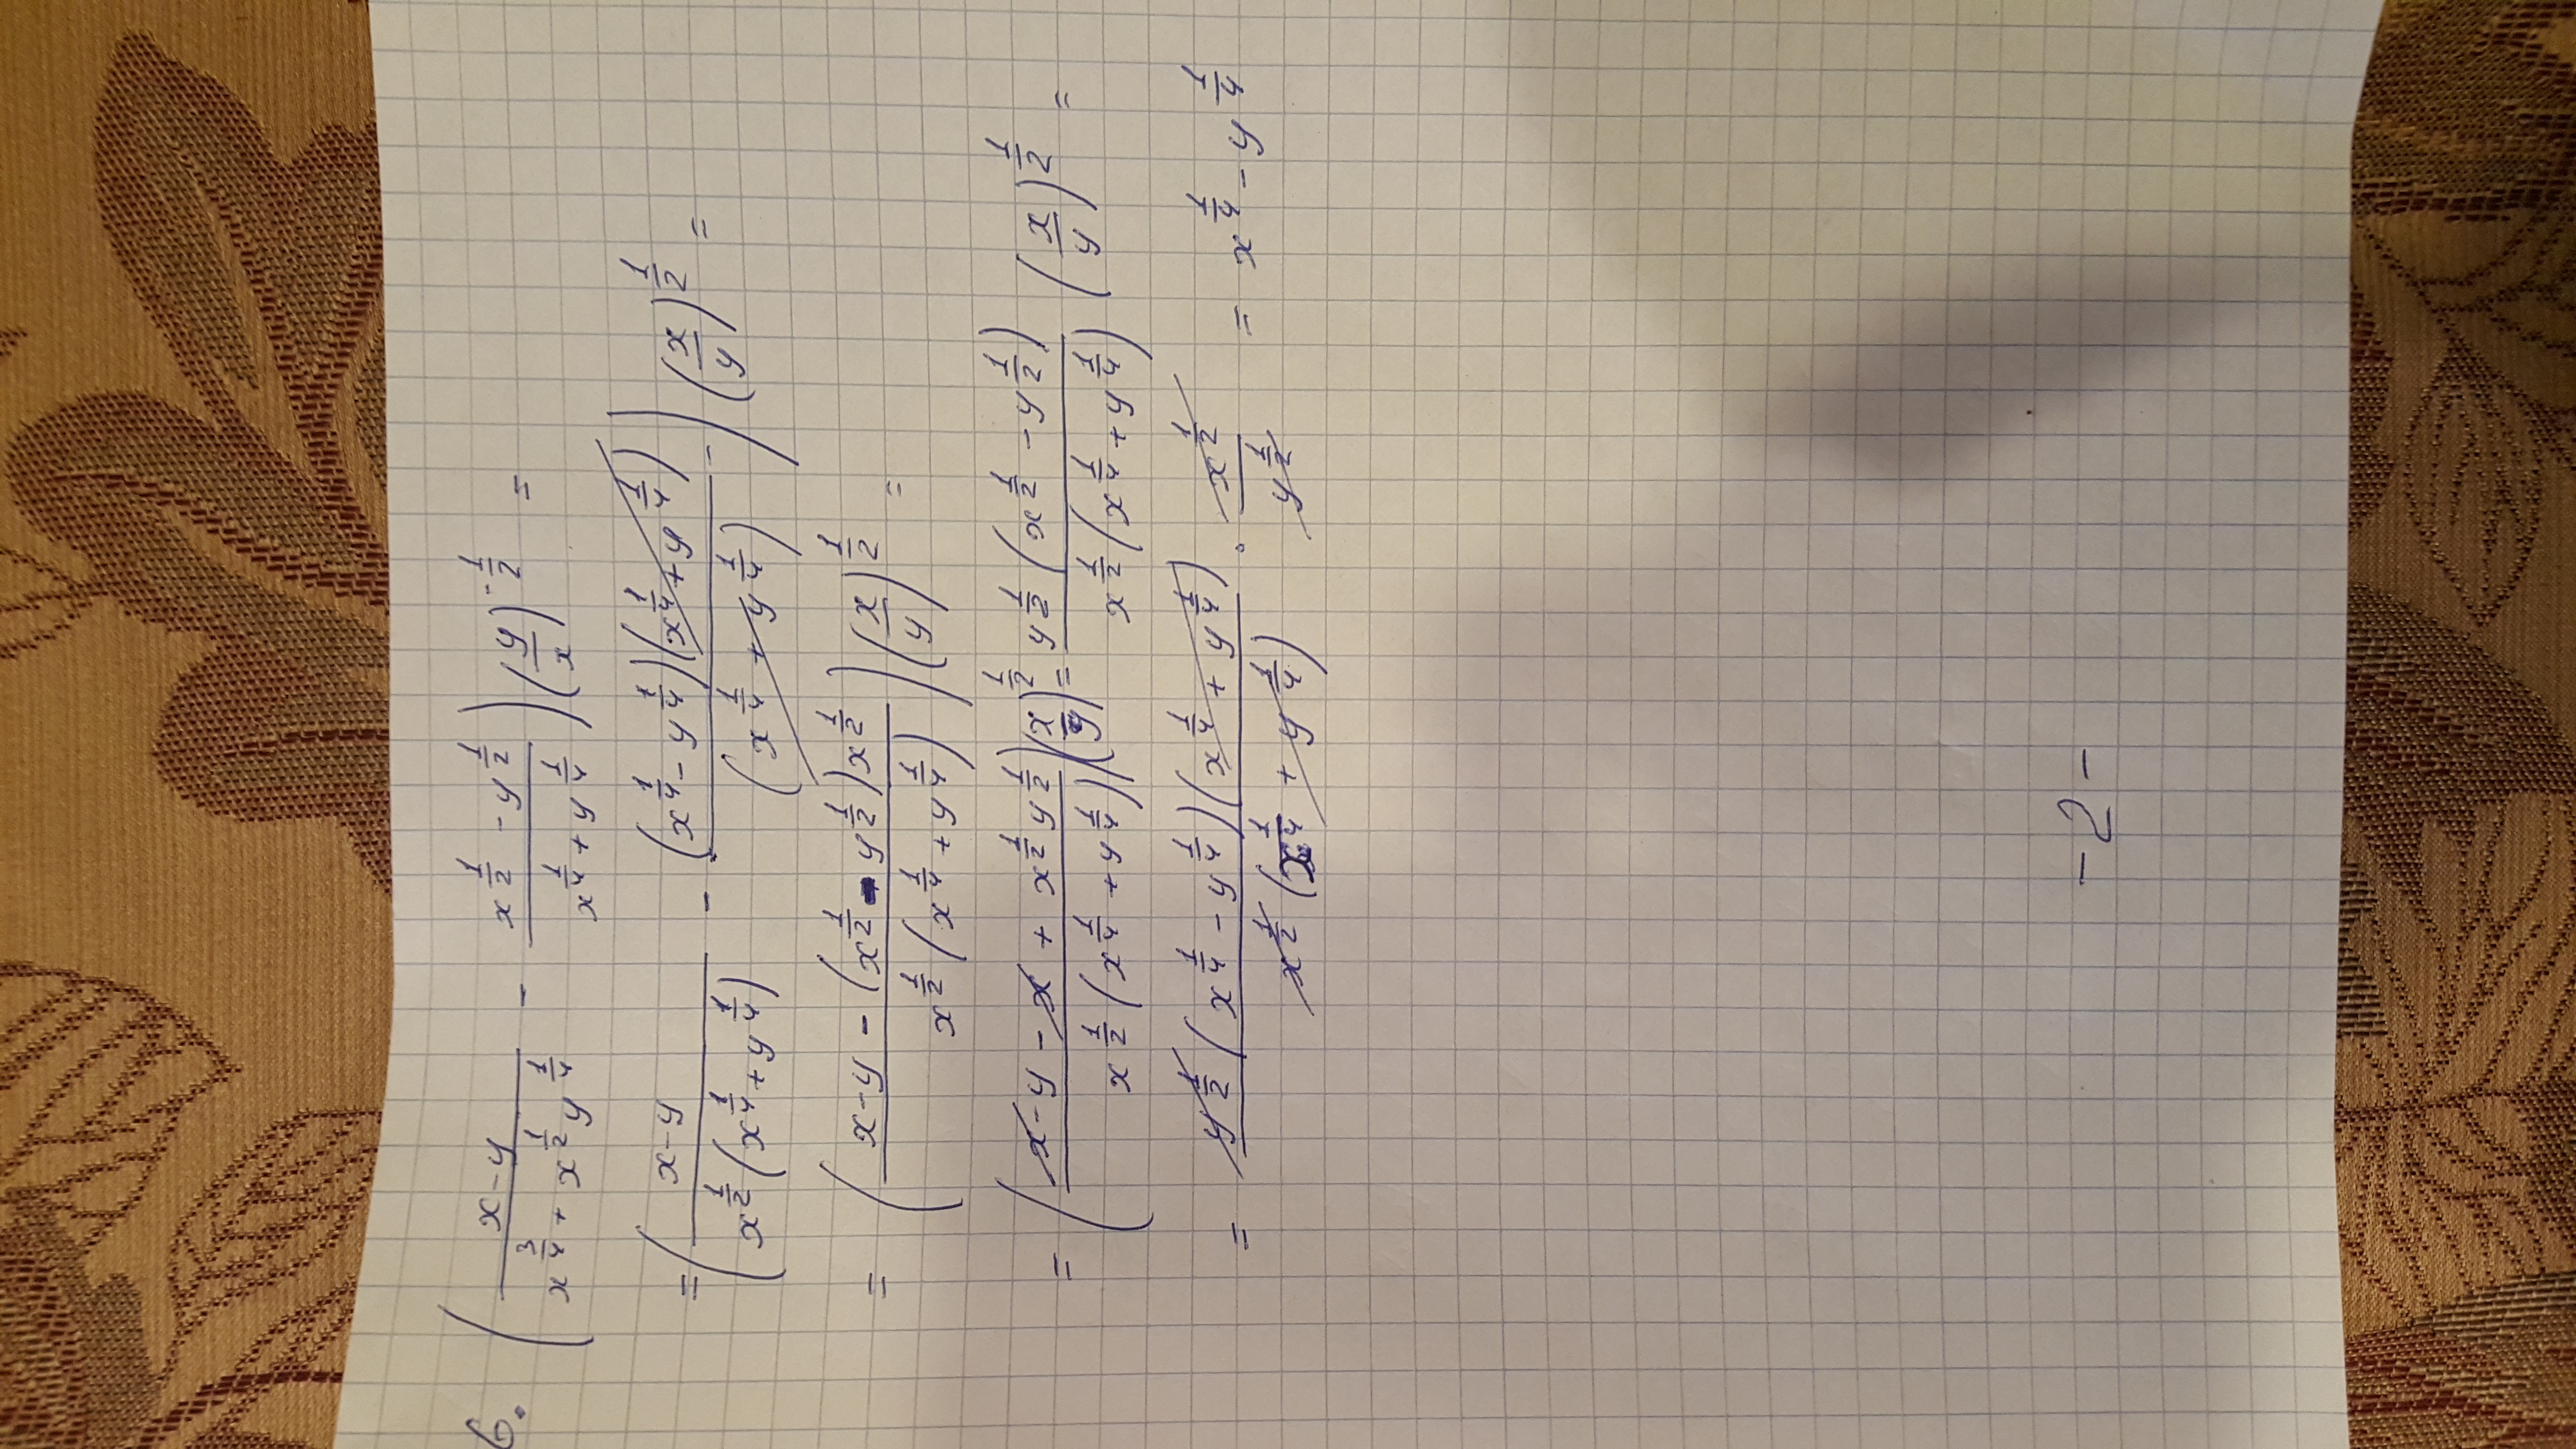 6. ( (x-y)/(x^(3/4) + x^(1/2) y^(1/4)) - (x^(1/2) - y^(1/2))/(x^(1/4) + y^(1/4)) ) (y/x)^(-1/2) =
= ( (x-y)/(x^(1/2) (x^(1/4) + y^(1/4))) - ((x^(1/4) - y^(1/4))(x^(1/4) + y^(1/4)))/(x^(1/4) + y^(1/4)) ) (x/y)^(1/2) =
= ( (x-y - (x^(1/2) - y^(1/2)) x^(1/2))/(x^(1/2) (x^(1/4) + y^(1/4))) ) (x/y)^(1/2) =
= ( (x-y - x + x^(1/2) y^(1/2))/(x^(1/2) (x^(1/4) + y^(1/4))) ) (x/y)^(1/2) = (y^(1/2) (x^(1/2) - y^(1/2)))/(x^(1/2) (x^(1/4) + y^(1/4))) (x/y)^(1/2) =
= (y^(1/2) (x^(1/4) - y^(1/4)) (x^(1/4) + y^(1/4)))/(x^(1/2) (x^(1/4) + y^(1/4))) · x^(1/2)/y^(1/2) = x^(1/4) - y^(1/4)
- 2 -